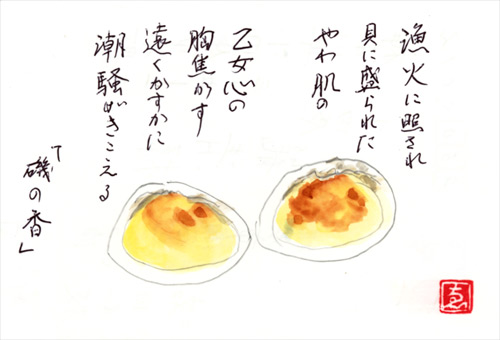 漁火に照され
貝に盛られた
やわ肌の
乙女心の
胸焦がす
遠くかすかに
潮騒がきこえる
「磯の香」
ゑ